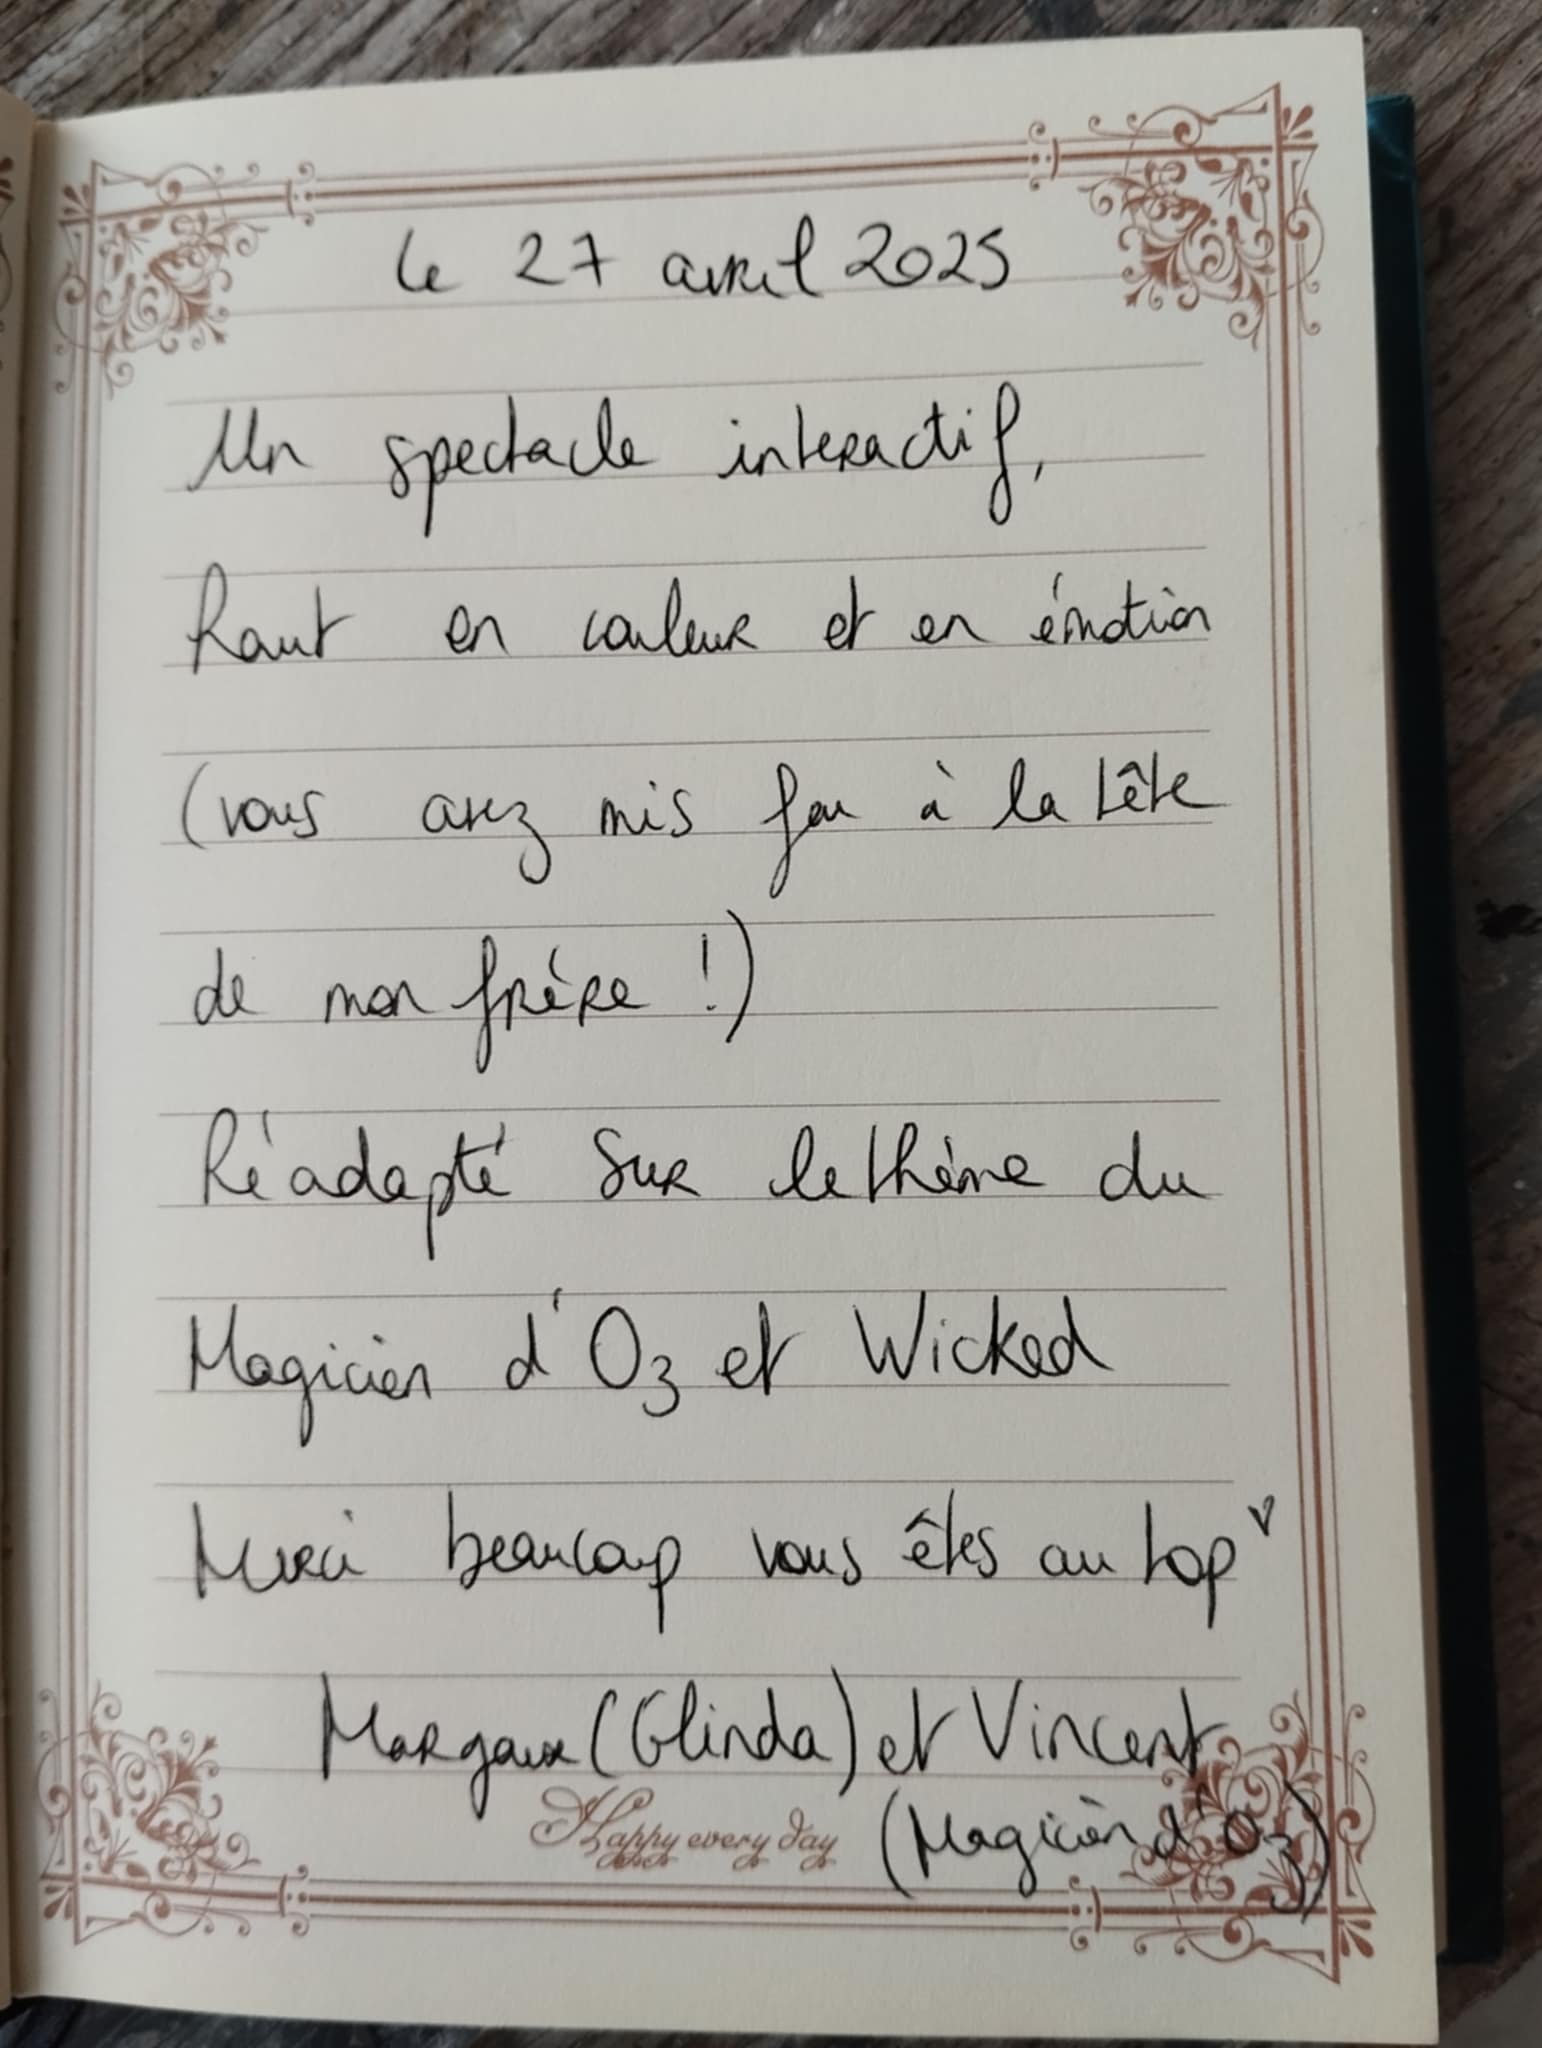 le 27 avril 2025
Un spectacle interactif,
haut en couleur et en émotion
(vous avez mis feu à la tête
de mon frère !)
Réadapté sur le thème du
Magicien d'Oz et Wicked
Merci beaucoup vous êtes au top ♥
Margaux (Glinda) et Vincent
(Magicien d'Oz)
Happy every day